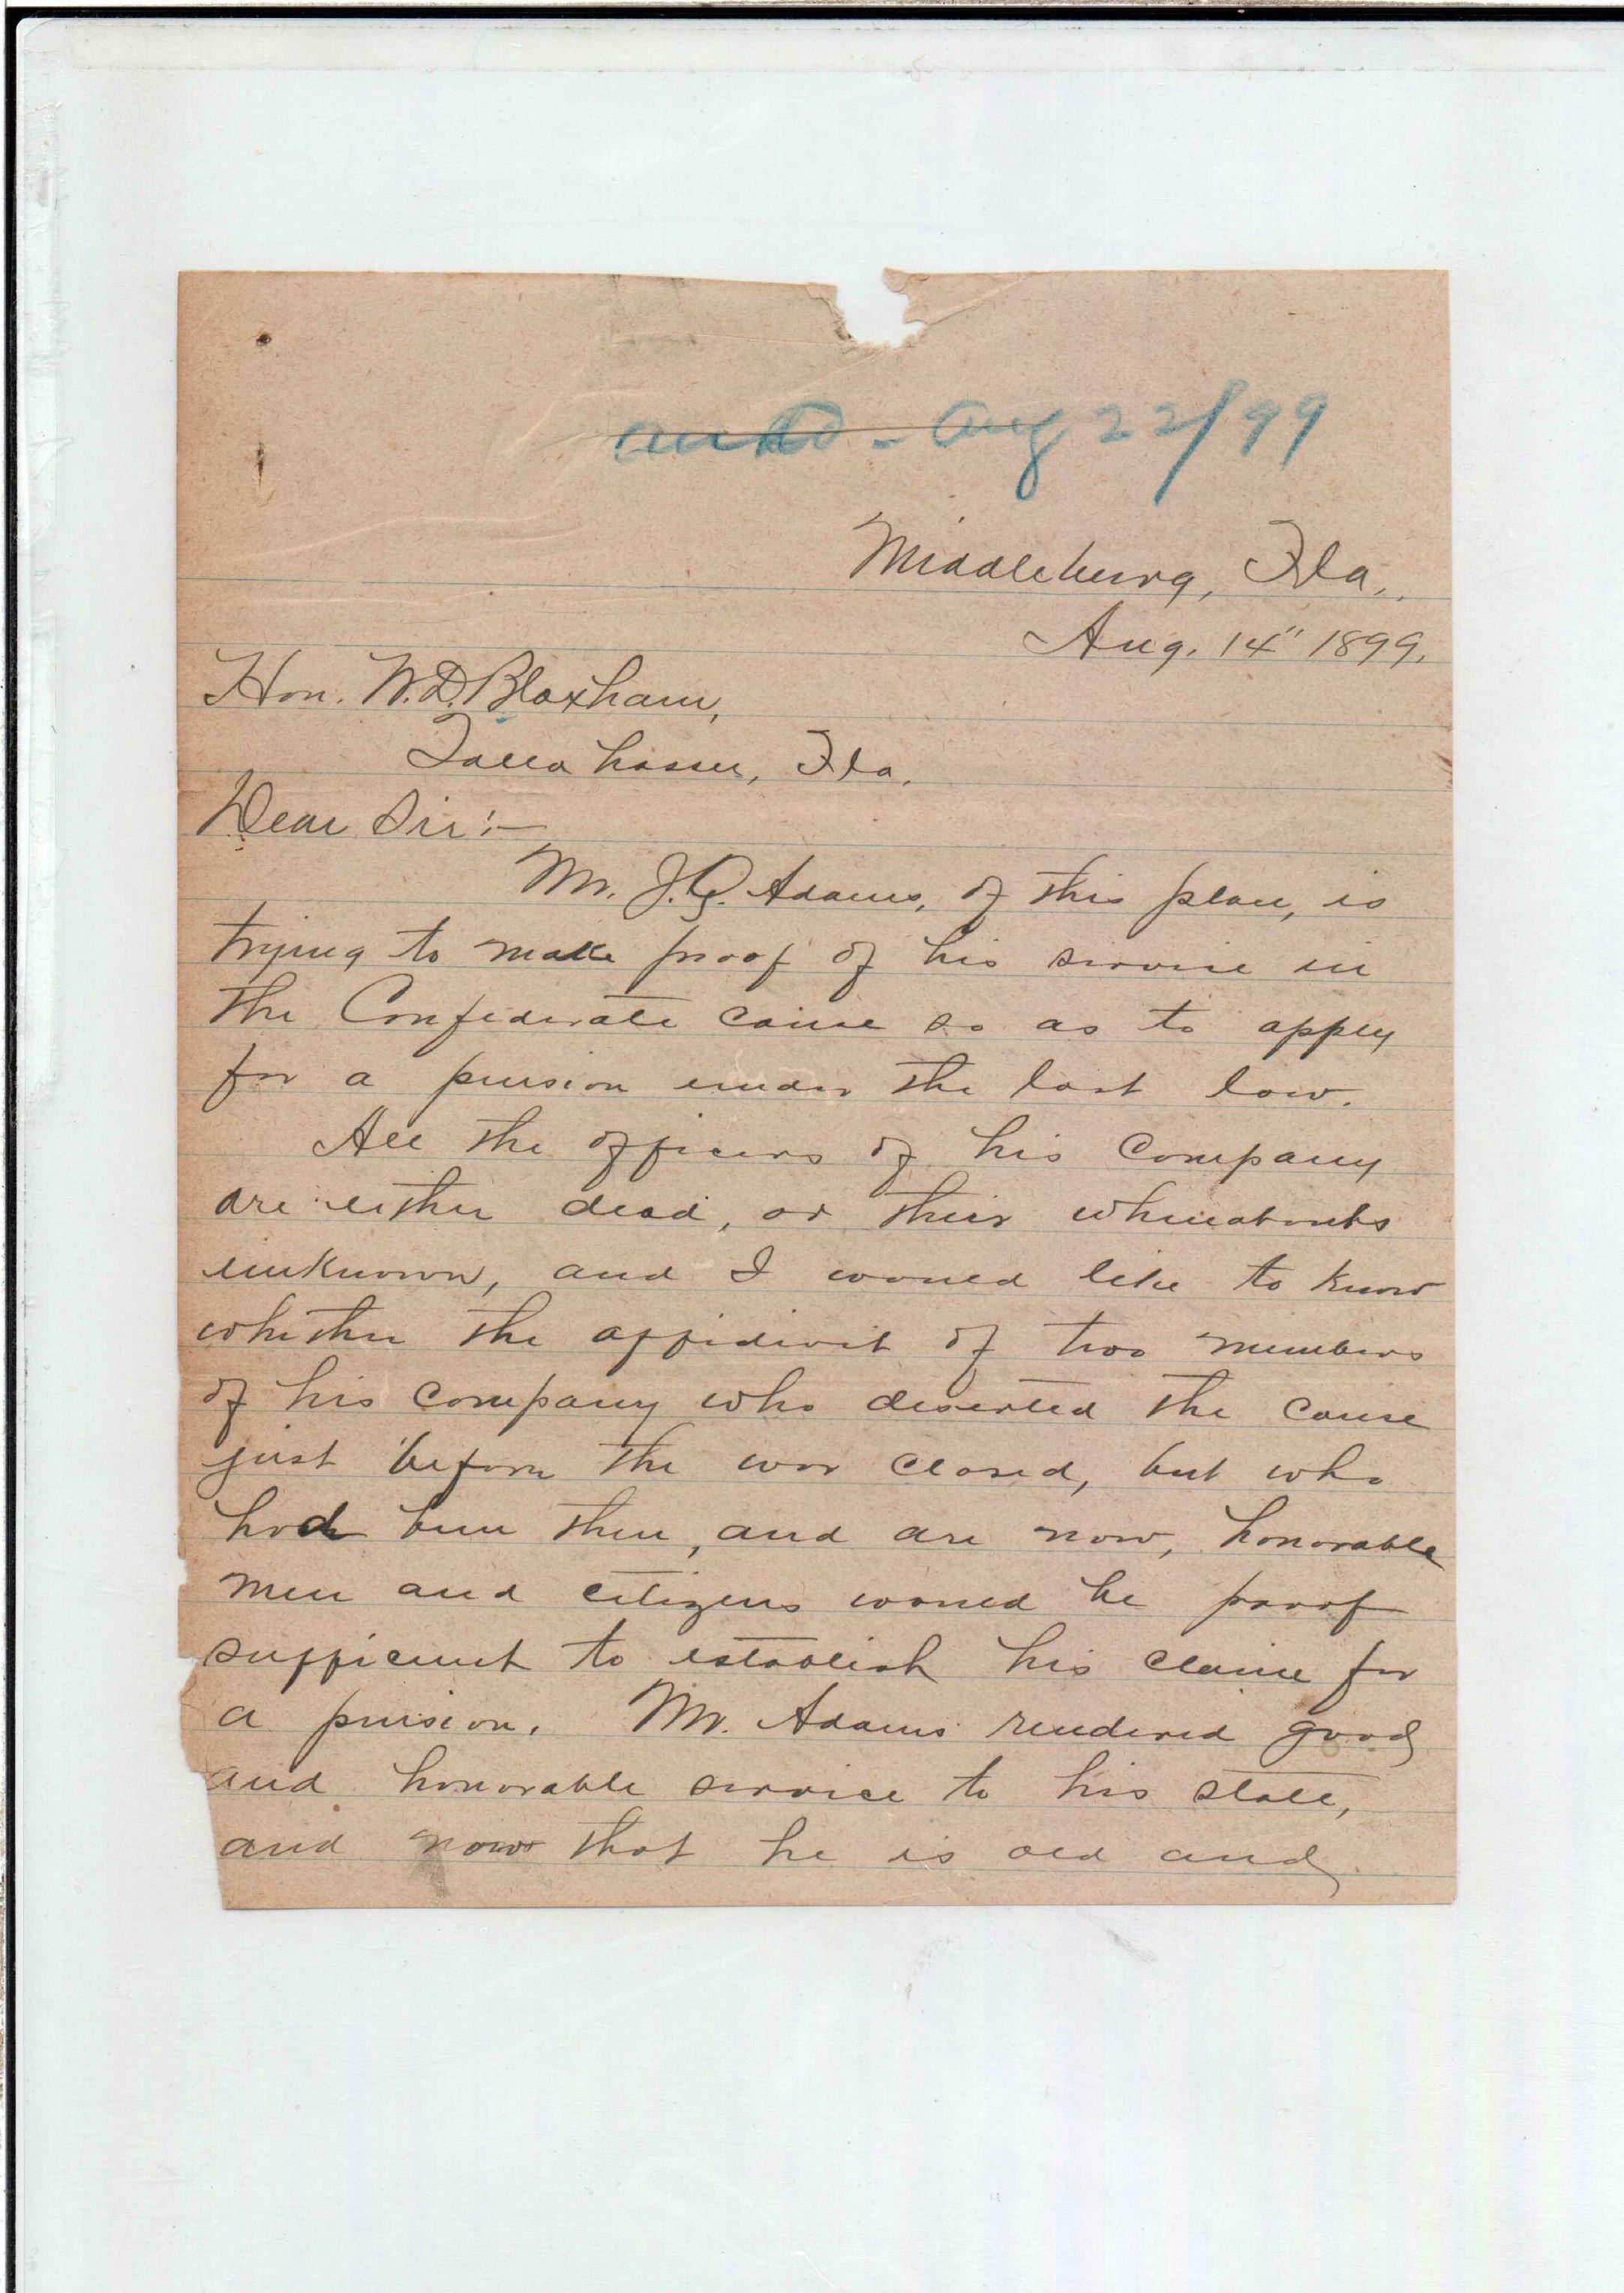 ansd - Aug 22/99
Middleburg, Fla.,
Aug. 14" 1899.
Hon. W. D. Bloxham,
Tallahassee, Fla.
Dear Sir:-
Mr. J. G. Adams, of this place, is
trying to make proof of his service in
the Confederate cause so as to apply
for a pension under the last law.
All the officers of his company
are either dead, or their whereabouts
unknown, and I would like to know
whether the affidavit of two members
of his company who deserted the cause
just before the war closed, but who
had been then, and are now, honorable
men and citizens would be proof
sufficient to establish his claim for
a pension. Mr. Adams rendered good
and honorable service to his state,
and now that he is old and